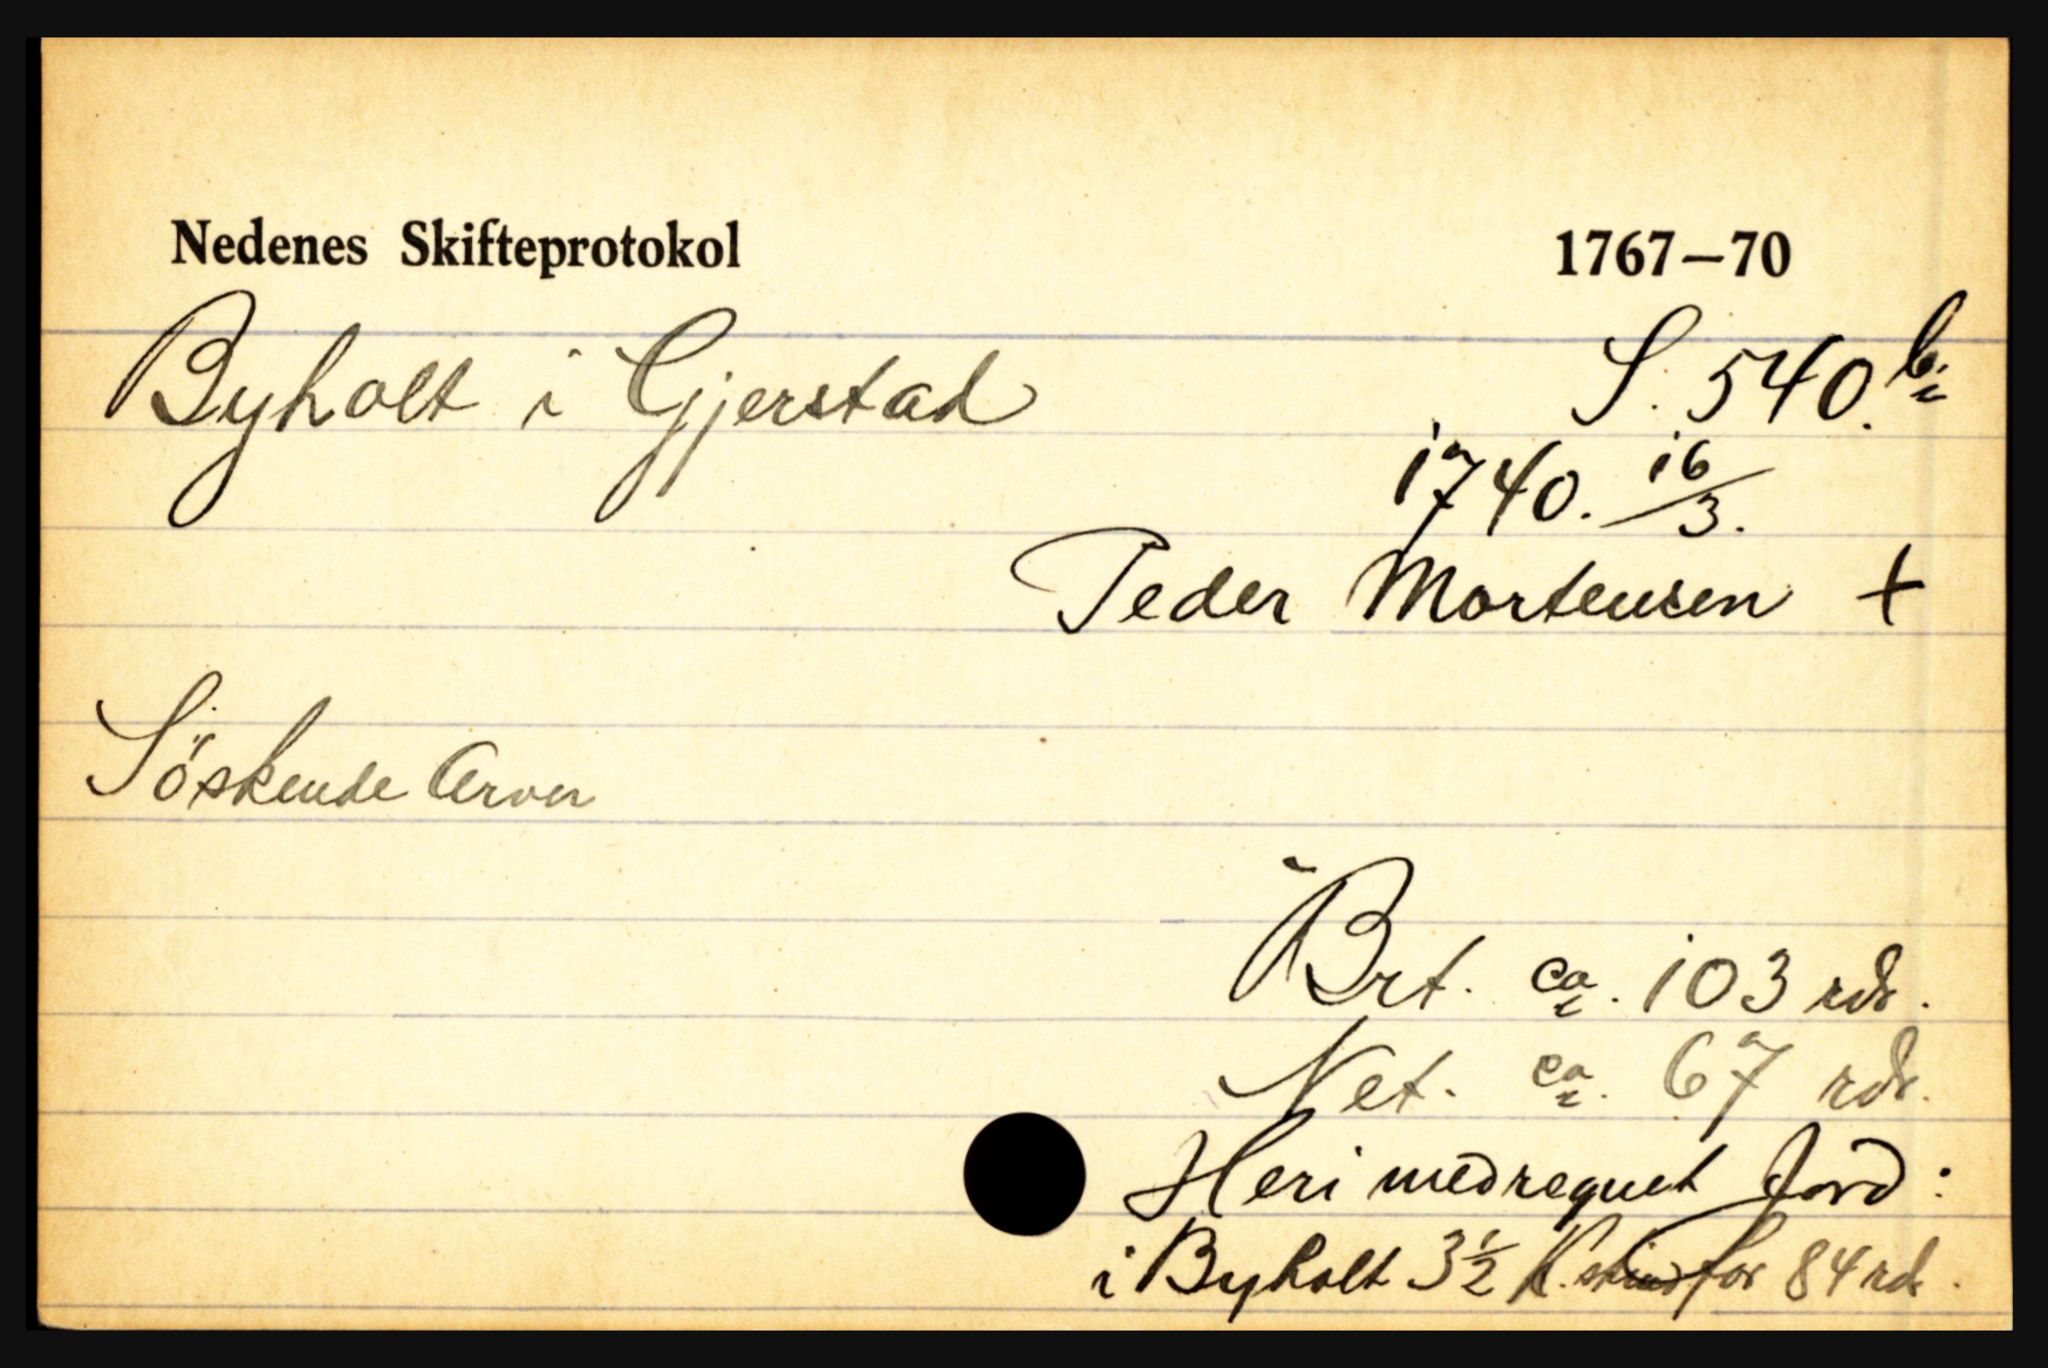 Nedenes Skifteprotokol 1767–70
Byholt i Gjerstad S. 540.b.
1740. 16/3.
Peder Mortensen +
Söskende Arver
Brt. ca. 103 rdr.
Net. ca. 67 rdr.
Heri medregnet Jord:
i Byholt 3½ K.skind for 84 rdr.